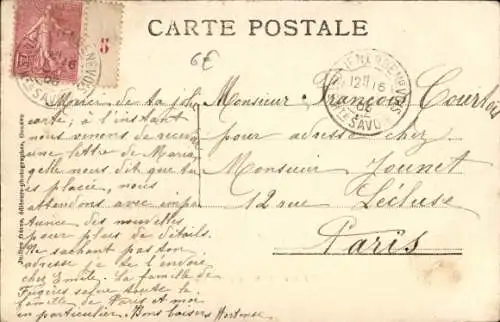 CARTE POSTALE
6€
5
Merci de ta jolie
carte; à l'instant
nous venons de recevoir
une lettre de Maria,
qu'elle nous dit que tu
es placée, nous
attendons avec impa
tience des nouvelles
pour plus de détails.
Ne sachant pas ton
adresse je te l'envoie
chez Emile. La famille de
Fugères salue toute la
famille de Paris et moi
en particulier. Bons baisers Hortense
Monsieur François Courtois
pour adresse chez
Monsieur Jounet
12 rue Lécluse
Paris
Jullien frères, éditeurs-photographes, Genève
12 16
SAVOIE